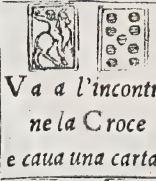 Va a l'incontr
ne la Croce
e caua una carta